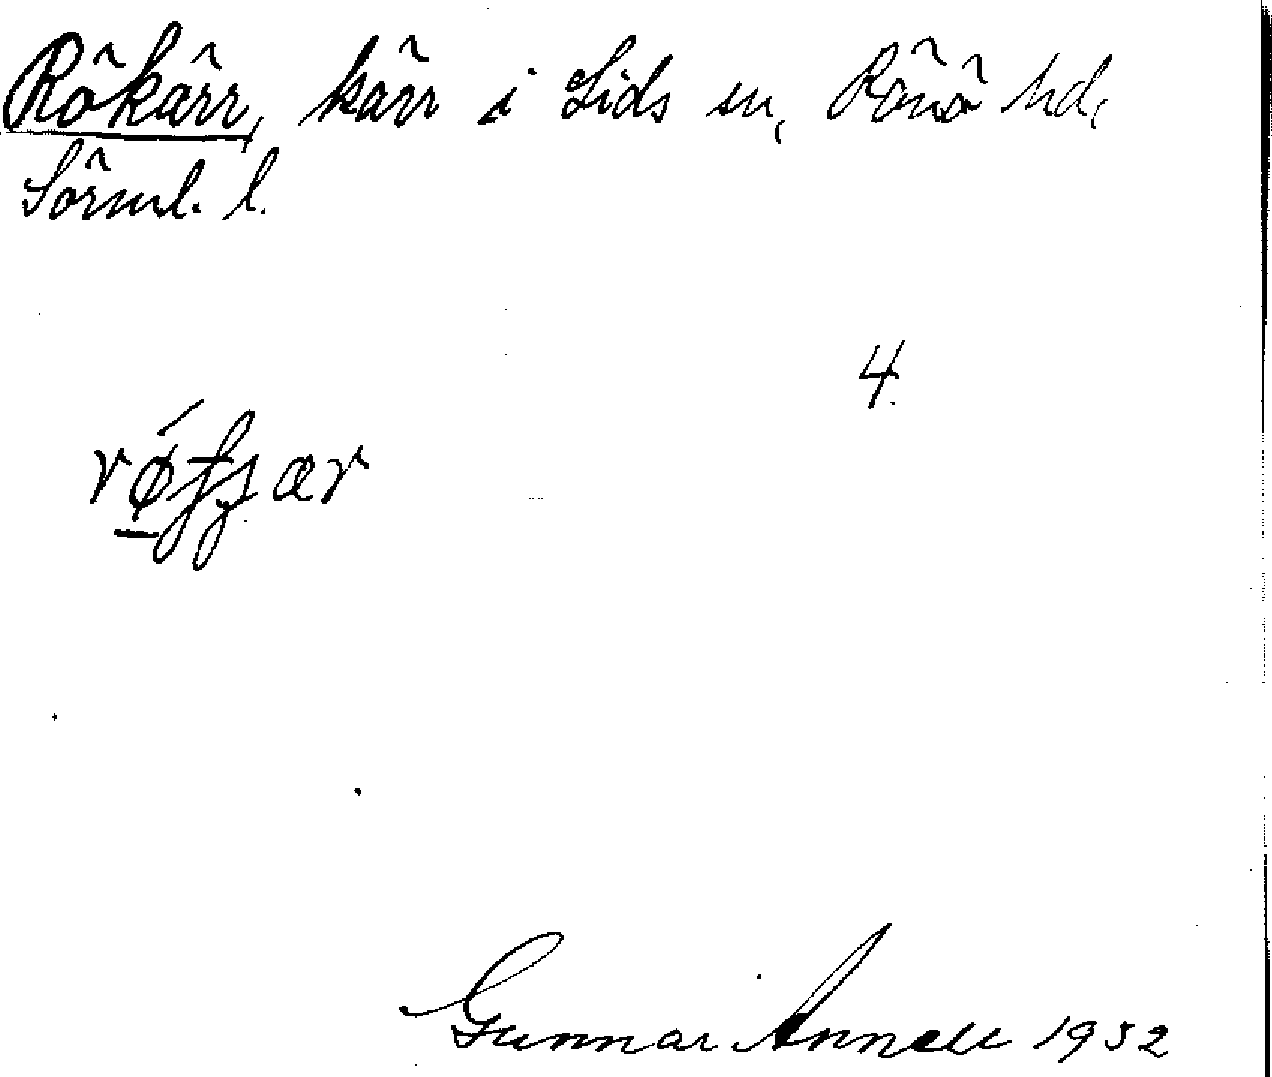 Rökärr, kärr i Lids sn, Rönö hd,
Sörml. l.
4
Gunnar Annell 1932